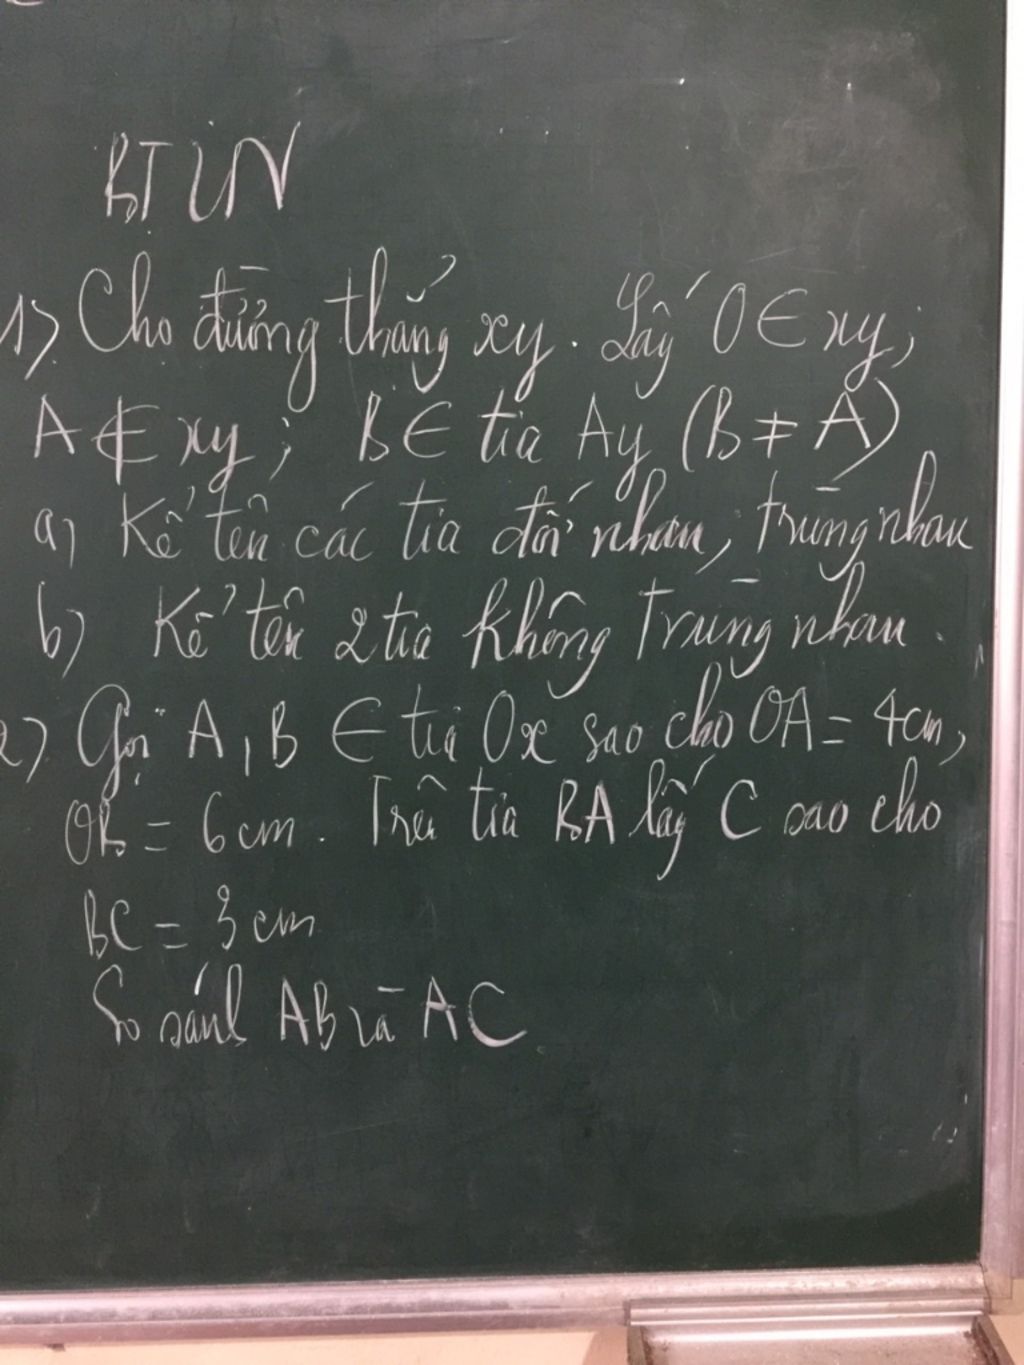 BTVN
1) Cho đường thẳng xy. Lấy O ∈ xy;
A ∉ xy; B ∈ tia Ay (B ≠ A)
a) Kể tên các tia đối nhau, trùng nhau
b) Kể tên 2 tia không trùng nhau.
2) Gọi A, B ∈ tia Ox sao cho OA = 4cm,
OB = 6cm. Trên tia BA lấy C sao cho
BC = 3cm
So sánh AB và AC